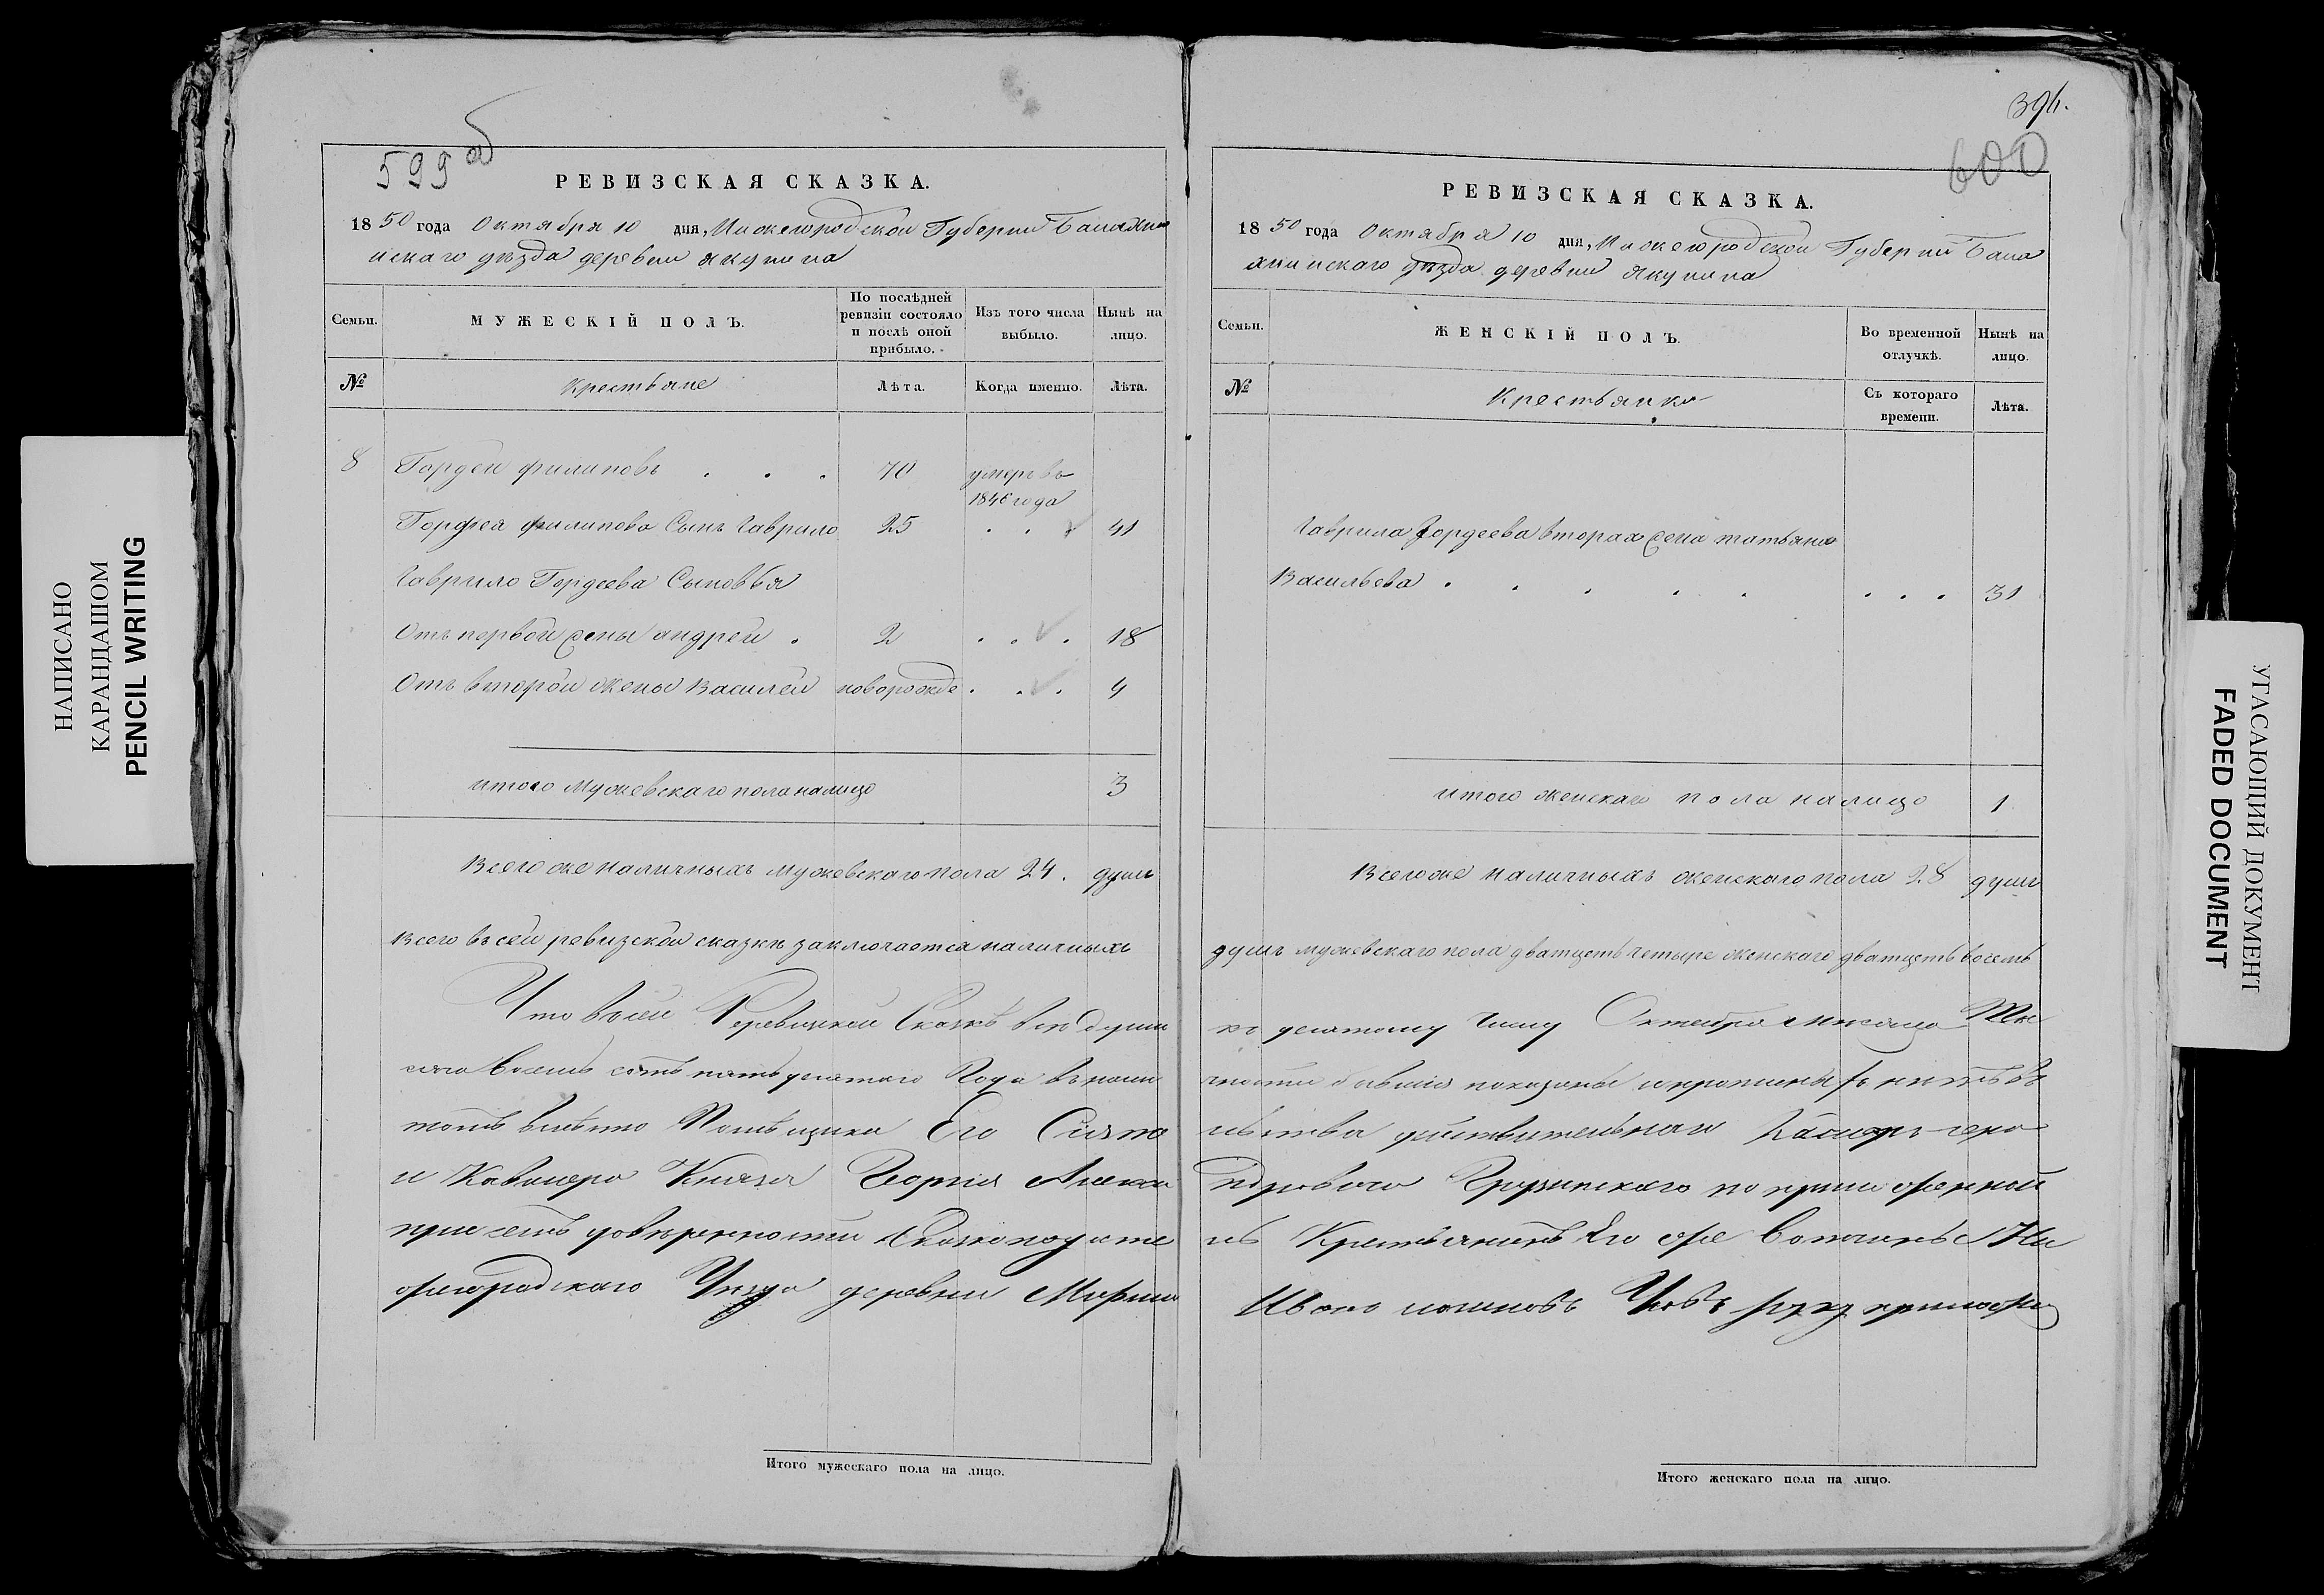 НАПИСАНО
КАРАНДАШОМ
PENCIL WRITING
599 об
РЕВИЗСКАЯ СКАЗКА.
1850 года Октября 10 дня, Нижегородской Губернии Балахни
нскаго уѣзда деревни якунина
Семьи.
МУЖЕСКІЙ ПОЛЪ.
По послѣдней
ревизіи состояло
и послѣ оной
прибыло.
Изъ того числа
выбыло.
Нынѣ на
лицо.
№
Крестьяне
Лѣта.
Когда именно.
Лѣта.
8 Гордей филиповъ . . . 70 умеръ въ
1846 года
Гордея филипова Сынъ гаврило 25 . . 41
гаврило Гордеева Сыновья
Отъ первой жены андрей . 2 . . . 18
Отъ второй жены василей новорожде . . . 4
итого мужевскаго пола налицо 3
Всего же наличныхъ мужевскаго пола 24. душъ
Всего въ сей ревизской сказкѣ заключается наличныхъ
Что в сей Ревизской Сказкѣ
восемь сотъ пятьдесятаго Года
Помѣщика Его Сияте
и Кавалера Князя Георгия Алекса
при семъ довѣренности Сказкоподате
жегородскаго Уѣзда деревни
Итого мужескаго пола на лицо.
396.
600
РЕВИЗСКАЯ СКАЗКА.
1850 года Октября 10 дня, Нижегородской Губернии Бала
хнинскаго уѣзда деревни якунина
Семьи.
ЖЕНСКІЙ ПОЛЪ.
Во временной
отлучкѣ.
Нынѣ на
лицо.
№
Крестьянки
Съ котораго
времени.
Лѣта.
гаврила Гордеева вторая жена татьяна
Васильева . . . . . . . . 31
итого женскаго пола налицо 1
Всего же наличныхъ женскаго пола 28 душъ
душъ мужевскаго пола дватцеть четыре женскаго дватцеть восемь
къ десятому числу Октебря месяца
показаны
льства действительнаго Камергера
ндровича Грузинскаго по приложенной
ль Крестьянинъ Его же вотчины Ни
Ивано руку приложи
Итого женскаго пола на лицо.
УГАСАЮЩИЙ ДОКУМЕНТ
FADED DOCUMENT